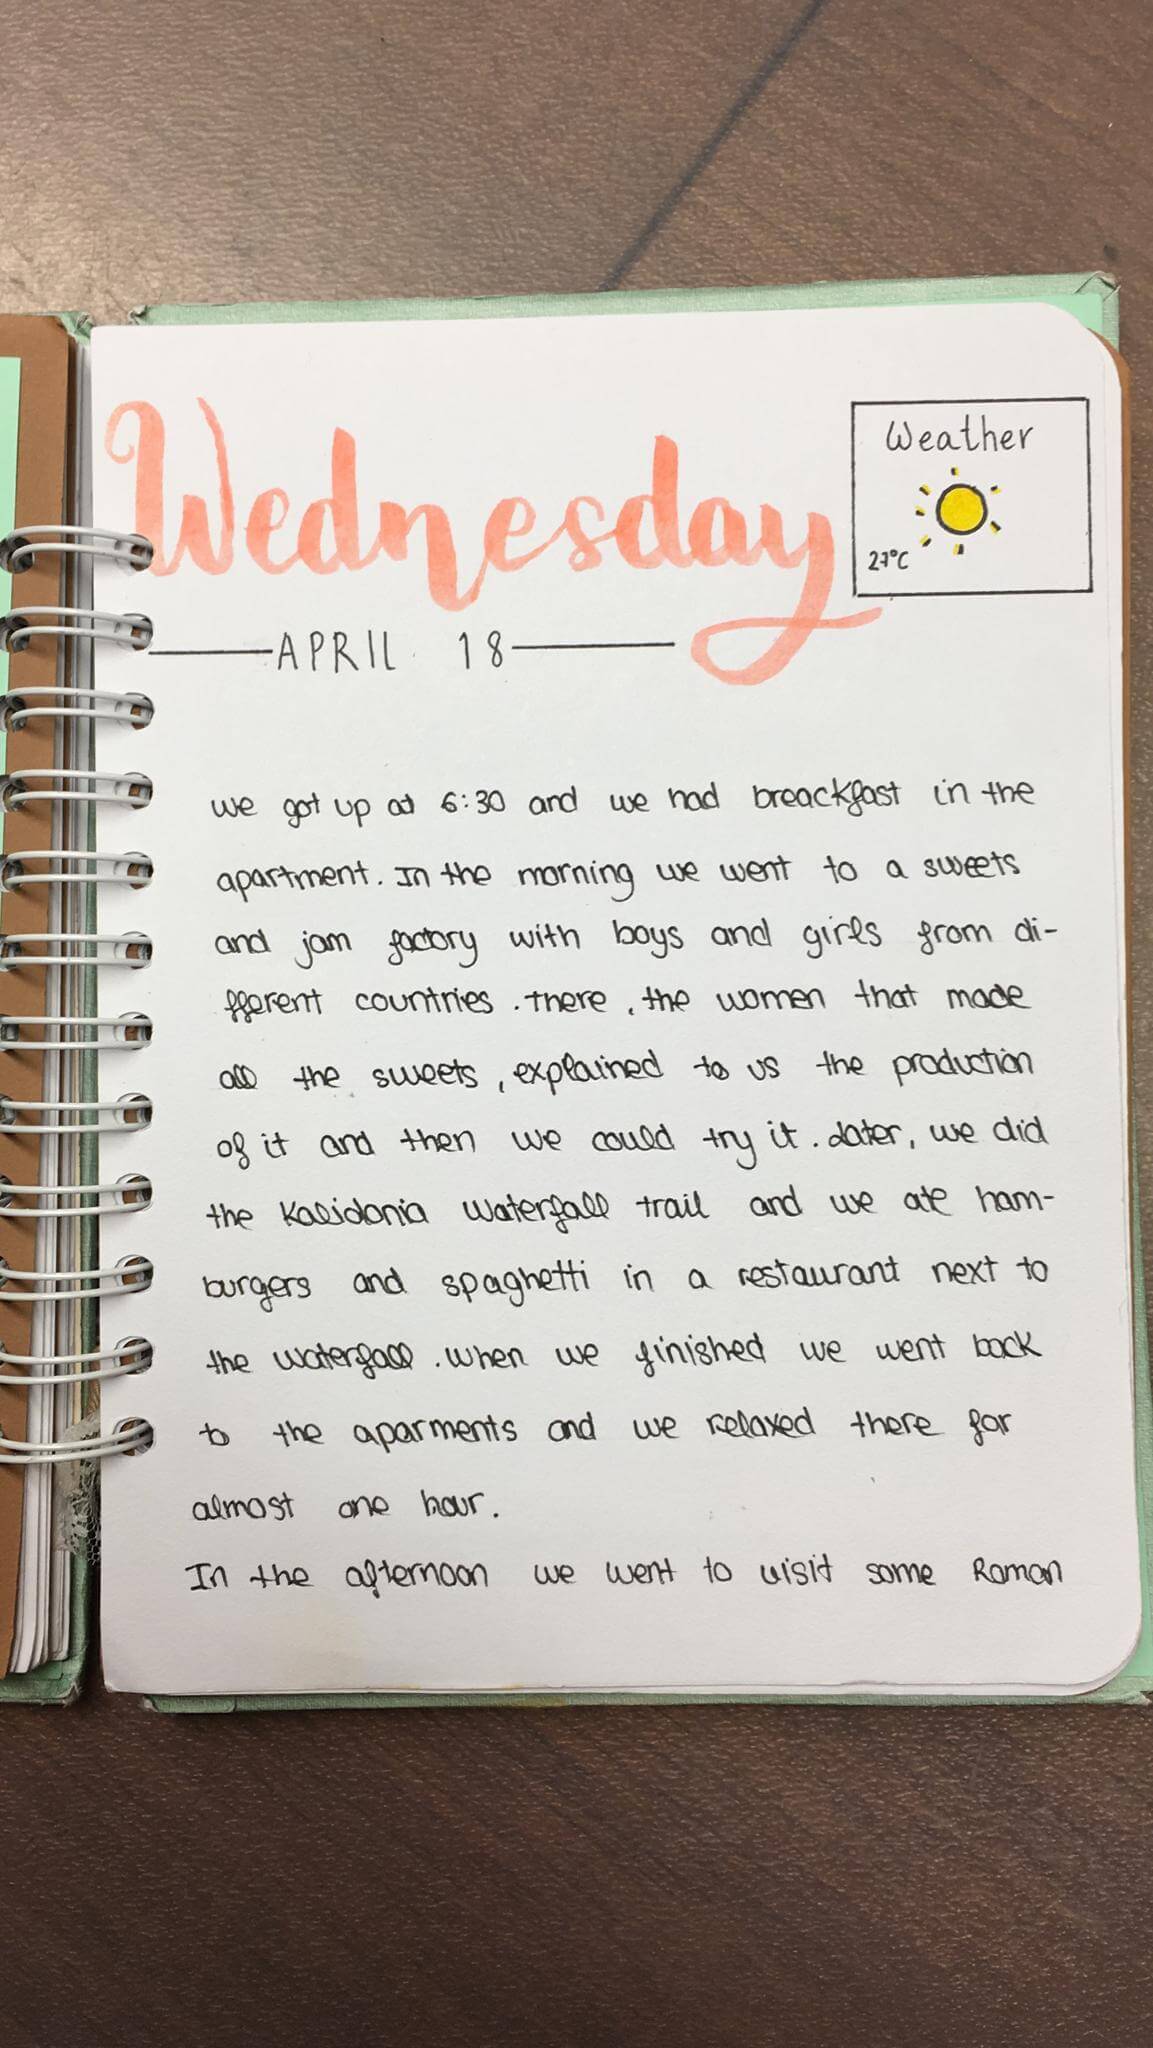 Wednesday
Weather
27°C
APRIL 18
we got up at 6:30 and we had breackfast in the
apartment. In the morning we went to a sweets
and jam factory with boys and girls from di-
fferent countries. There, the women that made
all the sweets, explained to us the production
of it and then we could try it. Later, we did
the Kalidonia waterfall trail and we ate ham-
burgers and spaghetti in a restaurant next to
the waterfall. When we finished we went back
to the aparments and we relaxed there for
almost one hour.
In the afternoon we went to visit some Roman